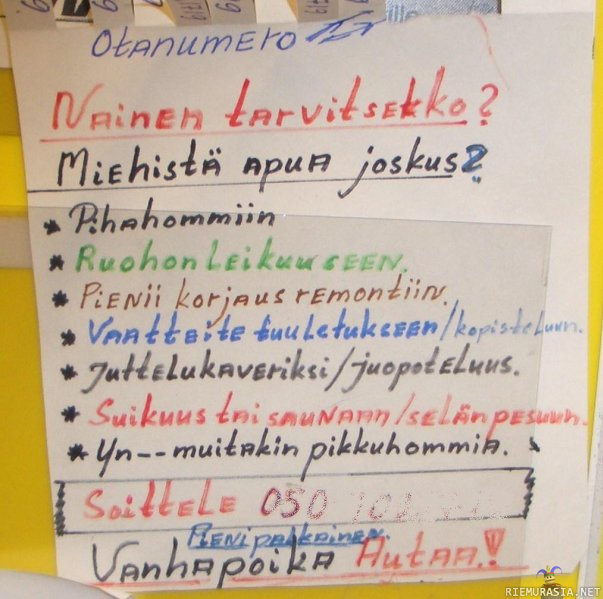 Otanumero
Nainen tarvitsekko?
Miehistä apua joskus?
* Pihahommiin
* Ruohonleikuuseen.
* Pienii korjaus remontiin.
* Vaatteite tuuletukseen/kopisteluun.
* Juttelukaveriksi/juopoteluus.
* Suikuus tai saunaan/selänpesuun.
* Ym-- muitakin pikkuhommia.
Soittele 050
Pienipalkkainen.
Vanhapoika Autaa!
RIEMURASIA.NET